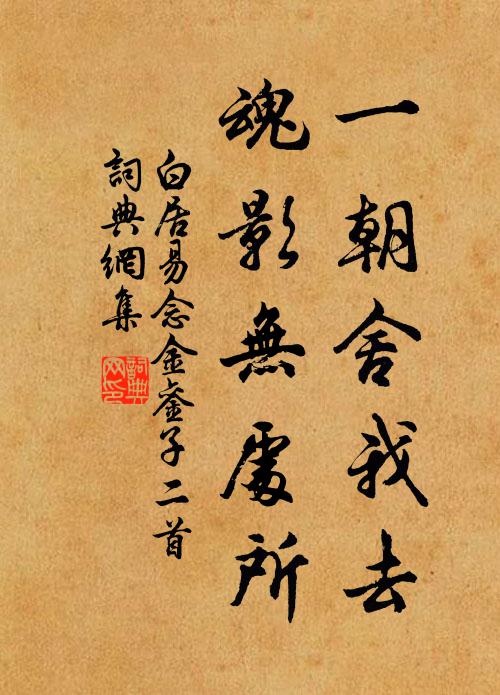 一朝舍我去
魂影無處所
白居易念金鑾子二首
詞典網集
詞典
网印